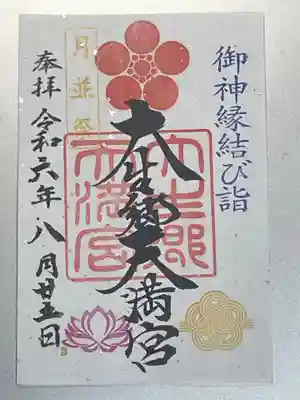 御神縁結び詣
大生郷天満宮
月並祭
奉拝 令和六年八月廿五日
大生郷天満宮